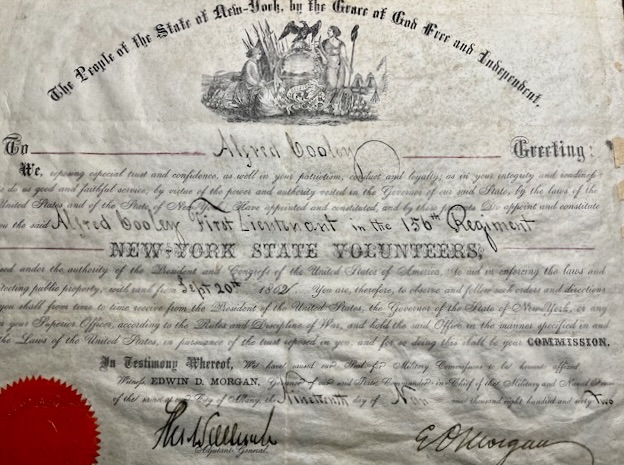 The People of the State of New-York, by the Grace of God Free and Independent,
To Alfred Cooley Greeting:
We, reposing especial trust and confidence, as well in your patriotism, conduct and loyalty, as in your integrity and readiness
to do us good and faithful service, by virtue of the power and authority vested in the Governor of our said State, by the laws of the
United States and of the State of New York Have appointed and constituted, and by these presents Do appoint and constitute
you the said Alfred Cooley First Lieutenant in the 156th Regiment
NEW-YORK STATE VOLUNTEERS,
under the authority of the President and Congress of the United States of America, to aid in enforcing the laws and
protecting public property; with rank from Sept 20th 1862. You are, therefore, to observe and follow such orders and directions
as you shall from time to time receive from the President of the United States, the Governor of the State of New-York, or any
your Superior Officer, according to the Rules and Discipline of War, and hold the said Office in the manner specified in and
the Laws of the United States, in pursuance of the trust reposed in you, and for so doing this shall be your COMMISSION.
In Testimony Whereof, We have caused our Seal for Military Commissions to be hereunto affixed.
Witness EDWIN D. MORGAN, Governor of our said State, Commander-in-Chief of the Military and Naval Forces
of the same at our City of Albany, the Nineteenth day of Nov one thousand eight hundred and sixty Two
E D Morgan
Adjutant General.